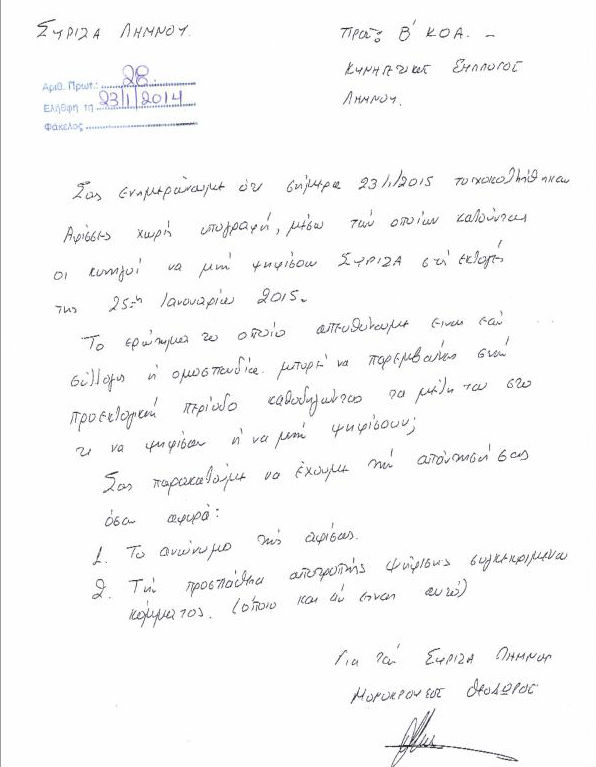 ΣΥΡΙΖΑ ΛΗΜΝΟΥ.
Προς: Β' ΚΟΑ. –
ΚΥΝΗΓΕΤΙΚΟΣ ΣΥΛΛΟΓΟΣ
ΛΗΜΝΟΥ.
Αριθ. Πρωτ.: 28
Ελήφθη τη 23/1/2014
Φάκελος
Σας ενημερώνουμε ότι σήμερα 23/1/2015 τοιχοκολλήθηκαν
Αφίσσες χωρίς υπογραφή, μέσω των οποίων καλούνται
οι κυνηγοί να μην ψηφίσουν ΣΥΡΙΖΑ στις εκλογές
της 25ης Ιανουαρίου 2015.
Το ερώτημα το οποίο απευθύνουμε είναι εαν
σύλλογος ή ομοσπονδία μπορεί να παρεμβαίνει στην
προεκλογική περίοδο καθοδηγώντας τα μέλη του στο
τι να ψηφίσουν ή να μην ψηφίσουν;
Σας παρακαλούμε να έχουμε την απάντησή σας
όσον αφορά:
1. Το ανώνυμο της αφίσας.
2. Την προσπάθεια αποτροπής ψήφισης συγκεκριμένου
κόμματος. (όποιο και αν είναι αυτό)
Για τον ΣΥΡΙΖΑ ΛΗΜΝΟΥ
ΘΕΟΔΩΡΟΣ